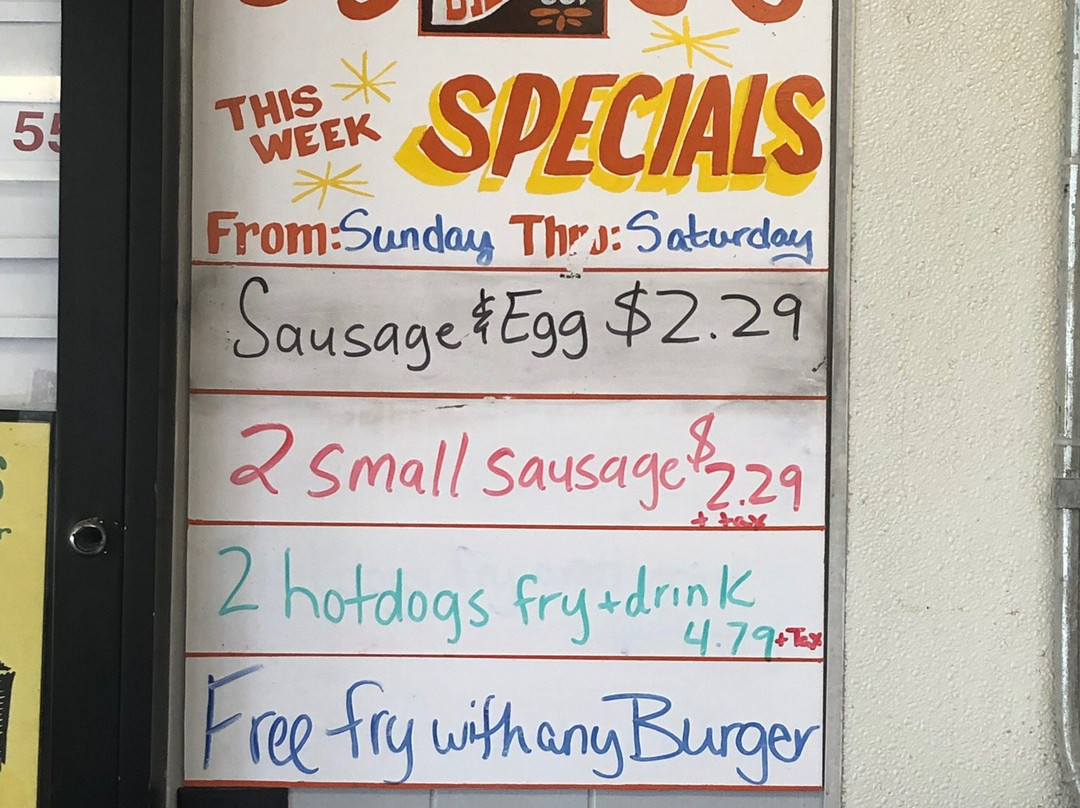 55
THIS
WEEK
SPECIALS
From: Sunday Thru: Saturday
Sausage & Egg $2.29
2 small sausage $2.29
+ tax
2 hotdogs fry + drink
4.79 + Tax
Free fry with any Burger